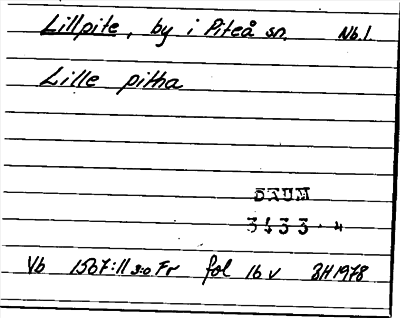 Lillpite, by i Piteå sn. Nb.l.
Lille pitha
DAUM
3433.4
Vb 1567:11 s:o Fr fol 16 v BH 1978